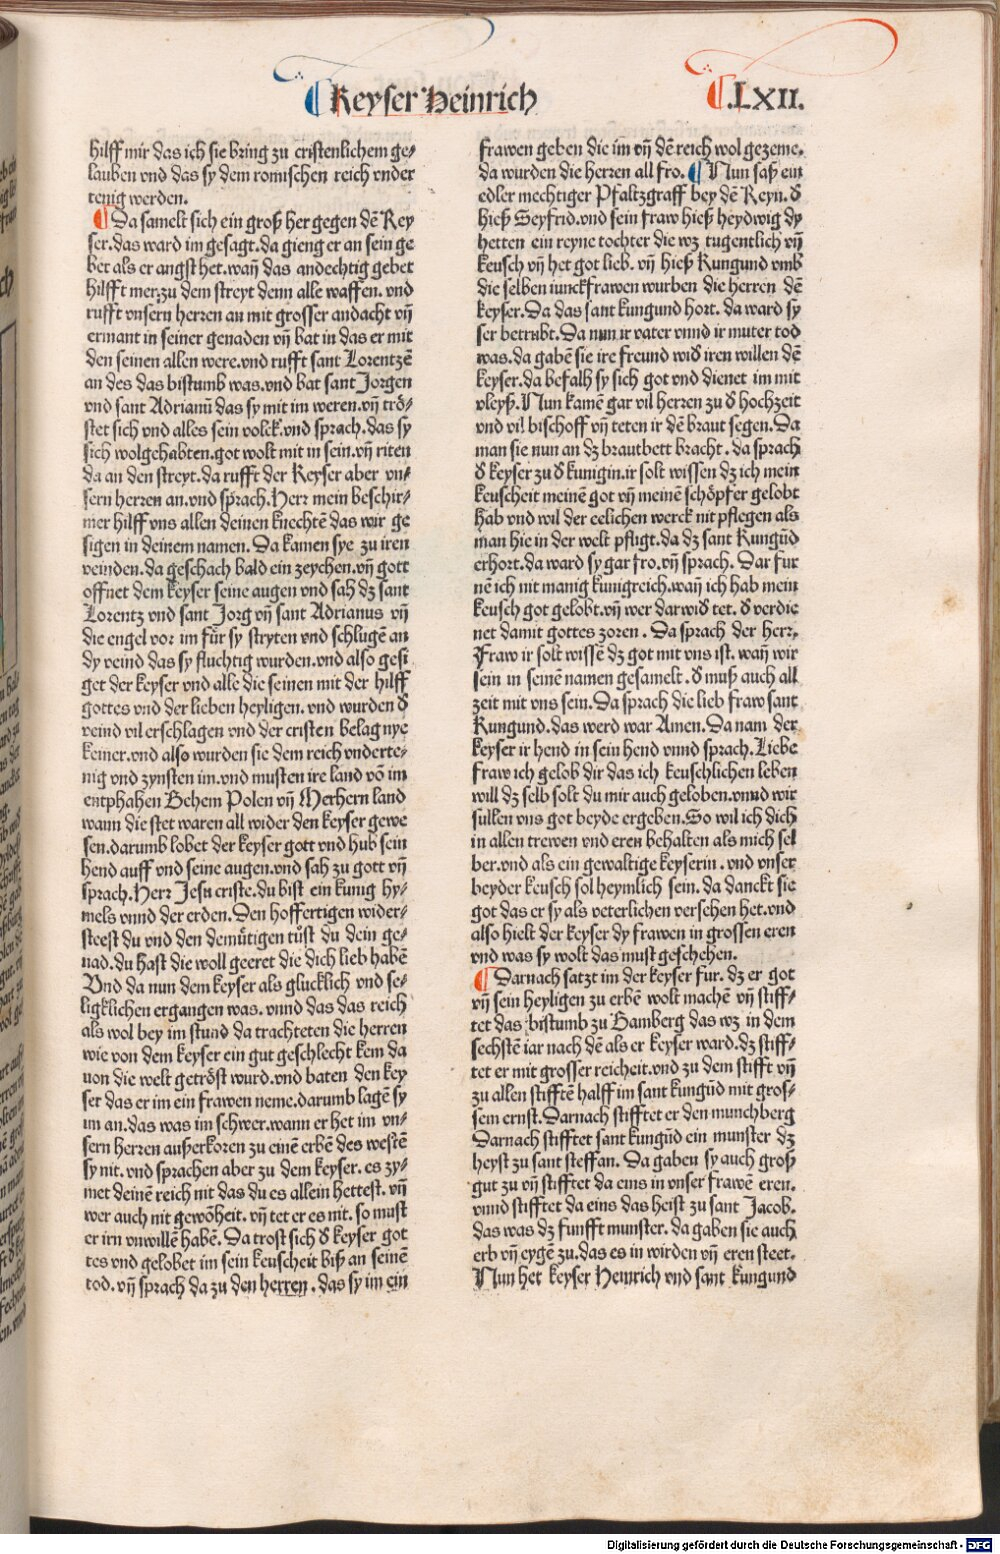 Keyser Heinrich
.LXII.
hilff mir das ich sie bring zu cristenlichem ge-
lauben vnd das sy dem romischen reich vnder
tenig werden.
Da samelt sich ein groß her gegen dē Key
ser.das ward im gesagt.da gieng er an sein ge
ber als er angst het.wañ das andechtig gebet
hilfft mer.zu dem streyt denn alle waffen. vnd
rufft vnsern herren an mit grosser andacht vñ
ermant in seiner genaden vñ bat in das er mit
den seinen allen were.vnd rufft sant Lorentzē
an des das bistumb was.vnd bat sant Jorgen
vnd sant Adrianū das sy mit im weren.vñ trö-
stet sich vnd alles sein volck.vnd sprach.das sy
sich wolgehabten.got wolt mit in sein.vñ riten
da an den streyt.da rufft der Keyser aber vn-
sern herren an.vnd sprach.Herr mein beschir-
mer hilff vns allen deinen knechtē das wir ge
sigen in deinem namen. Da kamen sye zu iren
veinden.da geschach bald ein zeychen.vñ gott
offnet dem keyser seine augen vnd sah dz sant
Lorentz vnd sant Jorg vñ sant Adrianus vñ
die engel vor im für sy stryten vnd schlugē an
dy veind das sy fluchtig wurden.vnd also gesi
get der keyser vnd alle die seinen mit der hilff
gottes vnd der lieben heyligen. vnd wurden ð
veind vil erschlagen vnd der cristen belag nye
keiner.vnd also wurden sie dem reich vnderte-
nig vnd zynsten im.vnd musten ire land vō im
entphahen Behem Polen vñ Merhern land
wann die stet waren all wider den keyser gewe
sen.darumb lobet der keyser gott vnd hub sein
hend auff vnd seine augen.vnd sah zu gott vñ
sprach.Herr Jesu criste.du bist ein kunig hy-
mels vnnd der erden. Den hoffertigen wider-
steest du vnd den demütigen tüst du dein ge-
nad.du hast die woll geeret die dich lieb habē
Vnd da nun dem keyser als glucklich vnd se-
ligklichen ergangen was. vnnd das das reich
als wol bey im stund da trachteten die herren
wie von dem keyser ein gut geschlecht kem da
uon die welt getröst wurd.vnd baten den key
ser das er im ein frawen neme.darumb lagē sy
im an.das was im schwer.wann er het im vn-
sern herren außerkoren zu einē erbē des westē
sy nit. vnd sprachen aber zu dem keyser. es zy-
met deinē reich nit das du es allein hettest. vñ
wer auch nit gewōheit. vñ tet er es nit. so must
er irn vnwillē habē. Da trost sich ð keyser got
tes vnd gelobet im sein keuscheit biß an seinē
tod. vñ sprach da zu den herren . das sy im ein
frawen geben die im vñ dē reich wol gezeme.
da wurden die herren all fro. Nun saß ein
edler mechtiger Pfaltzgraff bey dē Reyn. ð
hieß Seyfrid.vnd sein fraw hieß heydwig dy
hetten ein reyne tochter die wz tugentlich vñ
keusch vñ het got lieb. vñ hieß Kungund vmb
die selben iunckfrawen wurben die herren dē
keyser. Da das sant kungund hort. da ward sy
ser betrubt. Da nun ir vater vnnd ir muter tod
was.da gabē sie ire freund wið iren willen dē
keyser.da befalh sy sich got vnd dienet im mit
vleyß. Nun kamē gar vil herren zu ð hochzeit
vnd vil bischoff vñ teten ir dē braut segen. Da
man sie nun an dz brautbett bracht . da sprach
ð keyser zu ð kunigin.ir solt wissen dz ich mein
keuscheit meinē got vñ meinē schöpfer gelobt
hab vnd wil der eelichen werck nit pflegen als
man hie in der welt pfligt.da dz sant Kungūd
erhort.da ward sy gar fro.vñ sprach. Dar fur
nē ich nit manig kunigreich.wañ ich hab mein
keusch got gelobt.vñ wer darwið tet. ð verdie
net damit gottes zoren . Da sprach der herr,
Fraw ir solt wissē dz got mit vns ist. wañ wir
sein in seinē namen gesamelt. ð muß auch all
zeit mit vns sein. Da sprach die lieb fraw sant
Kungund.das werd war Amen. Da nam der
keyser ir hend in sein hend vnnd sprach. Liebe
fraw ich gelob dir das ich keuschlichen leben
will dz selb solt du mir auch geloben.vnnd wir
sullen vns got beyde ergeben. So wil ich dich
in allen trewen vnd eren behalten als mich sel
ber.vnd als ein gewaltige keyserin . vnd vnser
beyder keusch sol heymlich sein. da danckt sie
got das er sy als veterlichen versehen het.vnd
also hielt der keyser dy frawen in grossen eren
vnd was sy wolt das must geschehen.
Darnach satzt im der keyser fur. dz er got
vñ sein heyligen zu erbē wolt machē vñ stiff-
tet das bistumb zu Bamberg das wz in dem
sechstē iar nach dē als er keyser ward.dz stiff-
tet er mit grosser reicheit.vnd zu dem stifft vñ
zu allen stifftē halff im sant kungūd mit gros-
sem ernst. Darnach stifftet er den munchberg
Darnach stifftet sant kungūd ein munster dz
heyst zu sant steffan. Da gaben sy auch groß
gut zu vñ stifftet da eins in vnser frawē eren.
vnnd stifftet da eins das heist zu sant Jacob.
das was dz funfft munster. da gaben sie auch
erb vñ eygē zu.das es in wirden vñ eren steet.
Nun het keyser Heinrich vnd sant kungund
Digitalisierung gefördert durch die Deutsche Forschungsgemeinschaft - DFG